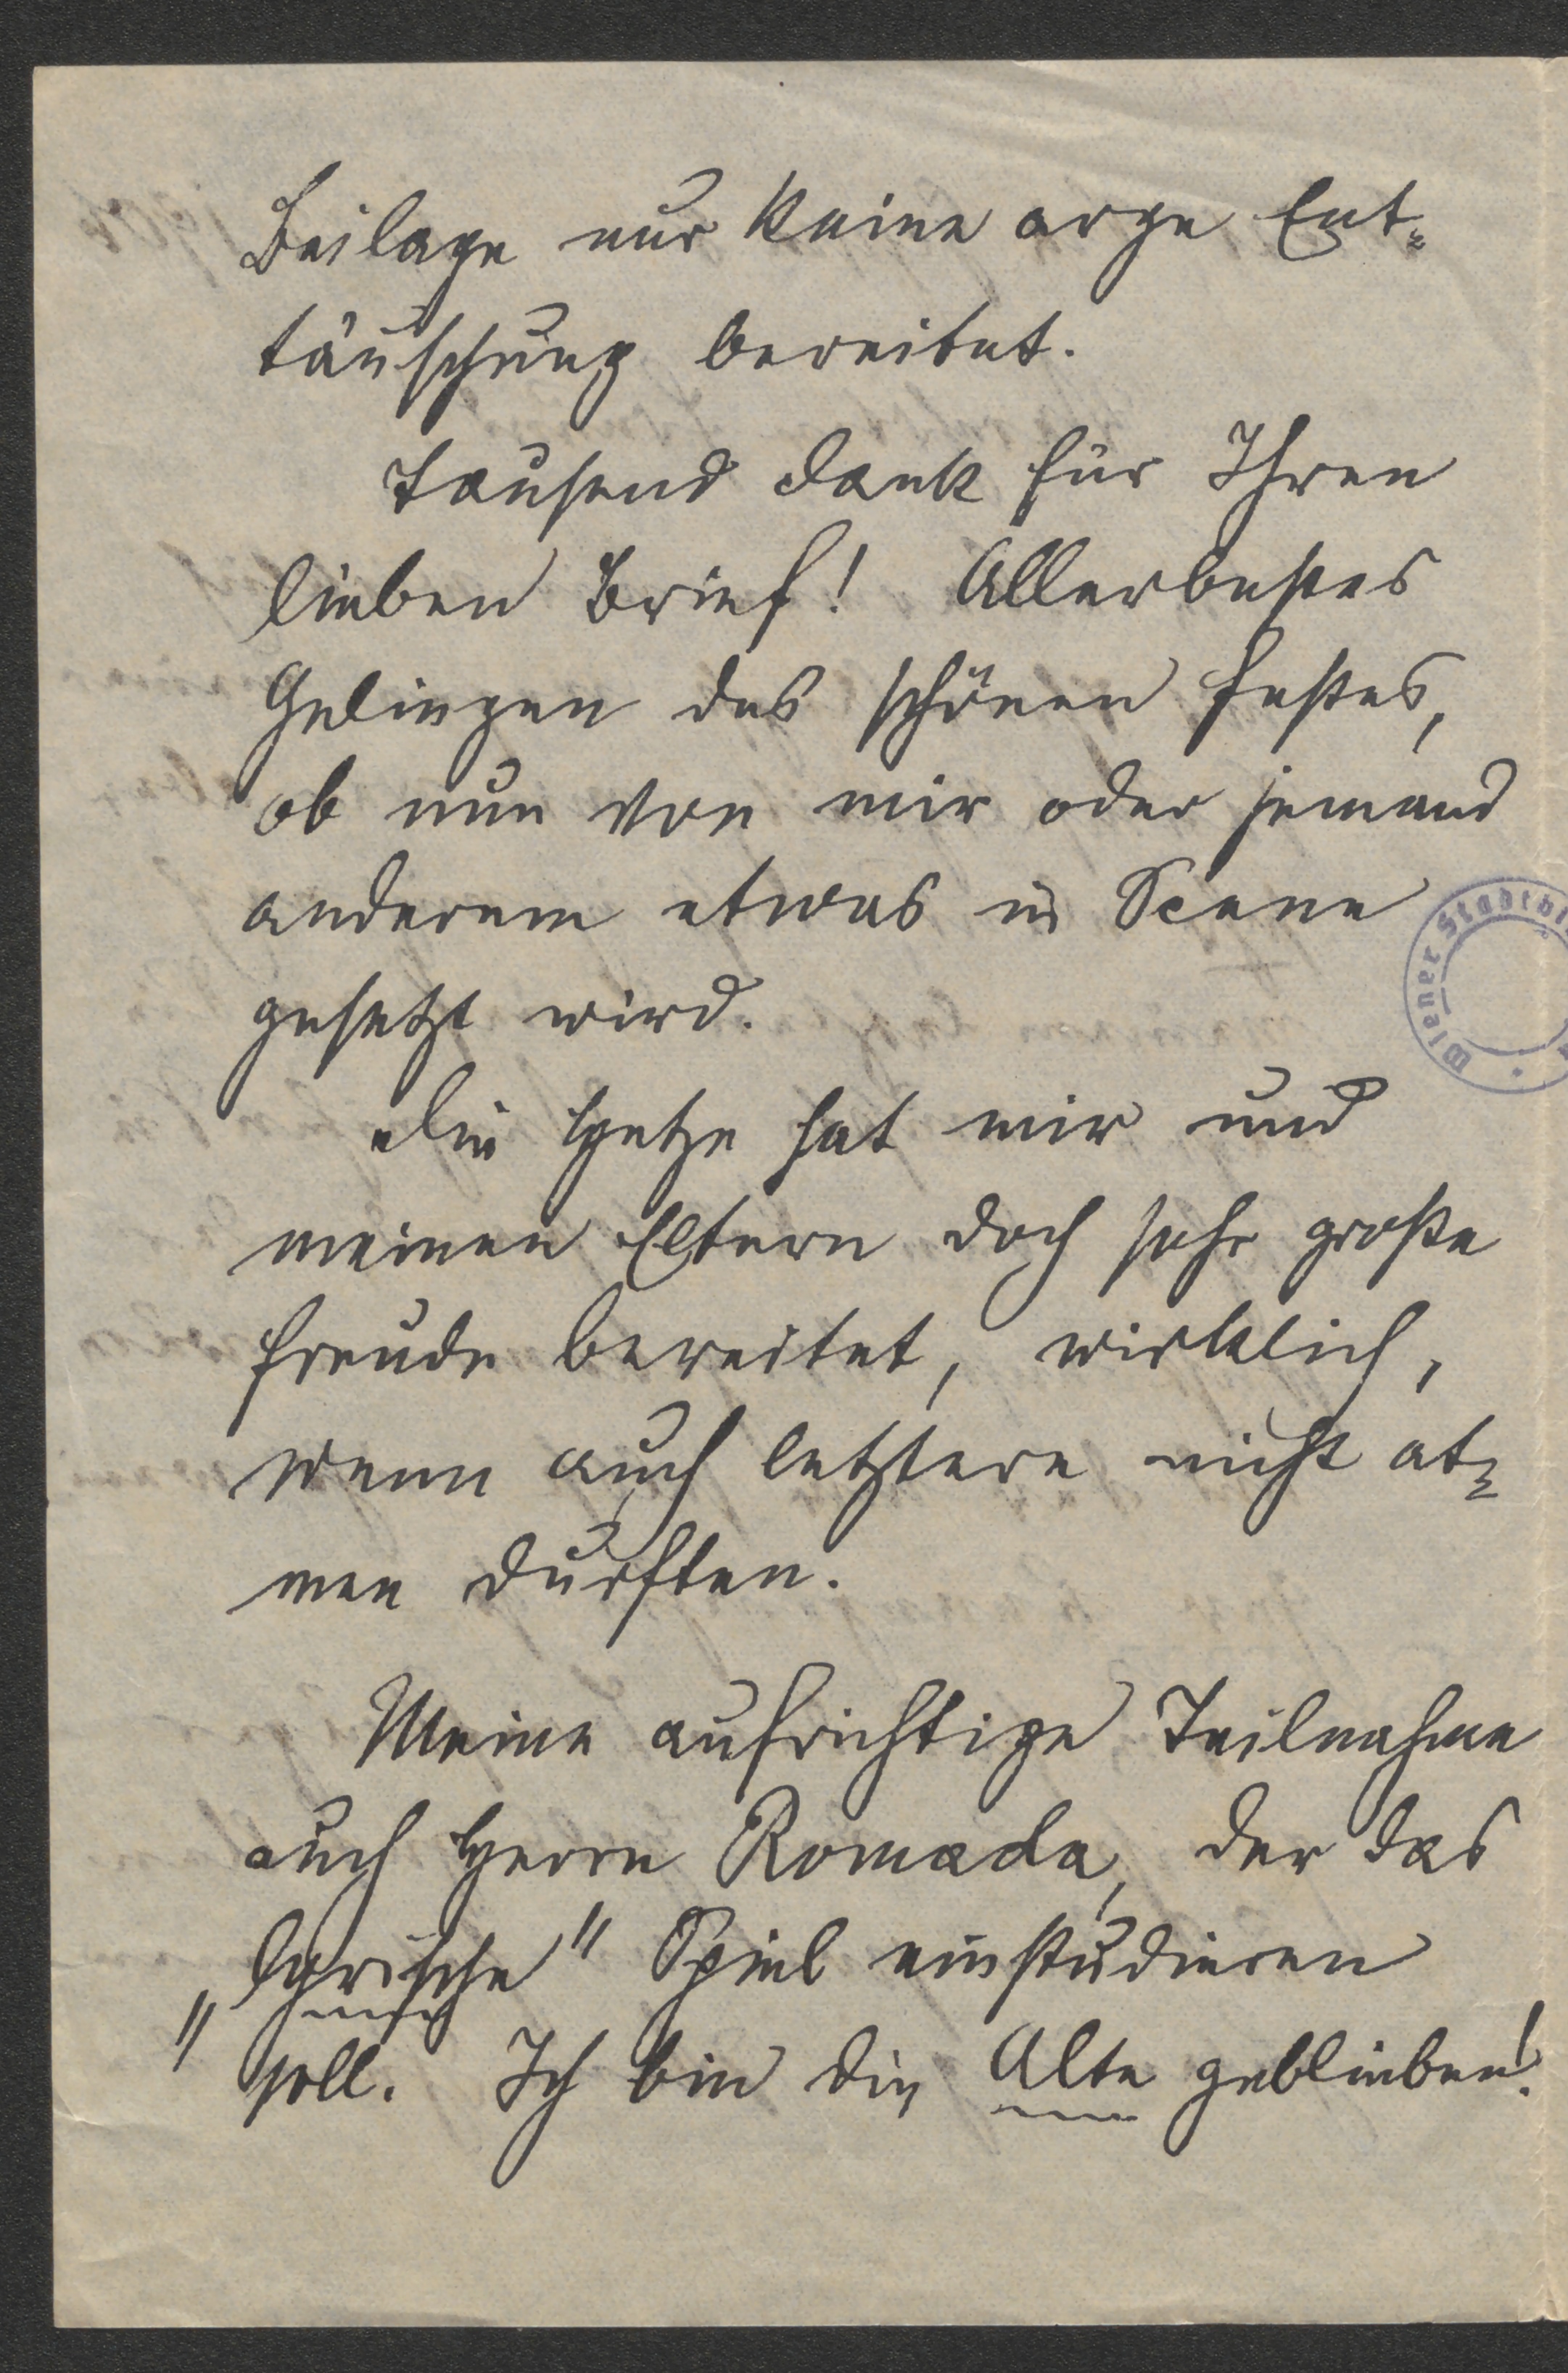 Beilage nur keine arge Ent-
täuschung bereitet.
Tausend Dank für Ihren
lieben Brief! Allerbestes
Gelingen des schönen Festes,
ob nun von mir oder jemand
anderem etwas in Scene
gesetzt wird.
Die Hetze hat mir und
meinen Eltern doch sehr große
Freude bereitet, wirklich,
wenn auch letztere nicht at-
men durften.
Meine aufrichtige Teilnahme
auch Herrn Romada, der das
„lyrische" Spiel einstudieren
soll. Ich bin die Alte geblieben!
Wiener Stadtbi